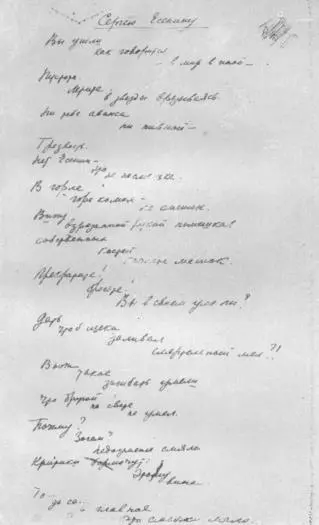 Сергею Есенину
Вы ушли
как говорится
в мир в иной —
Пустота.
Летите
в звезды врезываясь
Ни тебе аванса
ни пивной —
Трезвость.
Нет Есенин —
это не насмешка.
В горле
горе комом —
не смешок.
Вижу
взрезанной рукой помешкав
собственных
костей
качаете мешок.
Прекратите!
бросьте!
Вы в своем уме ли?
Дать
чтоб щеки
заливал
смертельный мел?!
Вы ж
такое
загибать умели
что другой
на свете
не умел.
Почему?
Зачем?
недоуменье смяло
Критики бормочут:
Этому
вина
То
да се
главное
что смычки мало